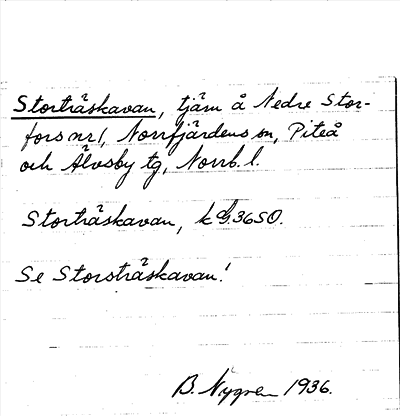 Storträskavan, tjärn å Nedre Stor-
fors nr 1, Norrfjärdens sn, Piteå
och Älvsby tg, Norrb. l.
Storträskavan, k G36SO.
Se Storsträskavan!
B. Nygren 1936.